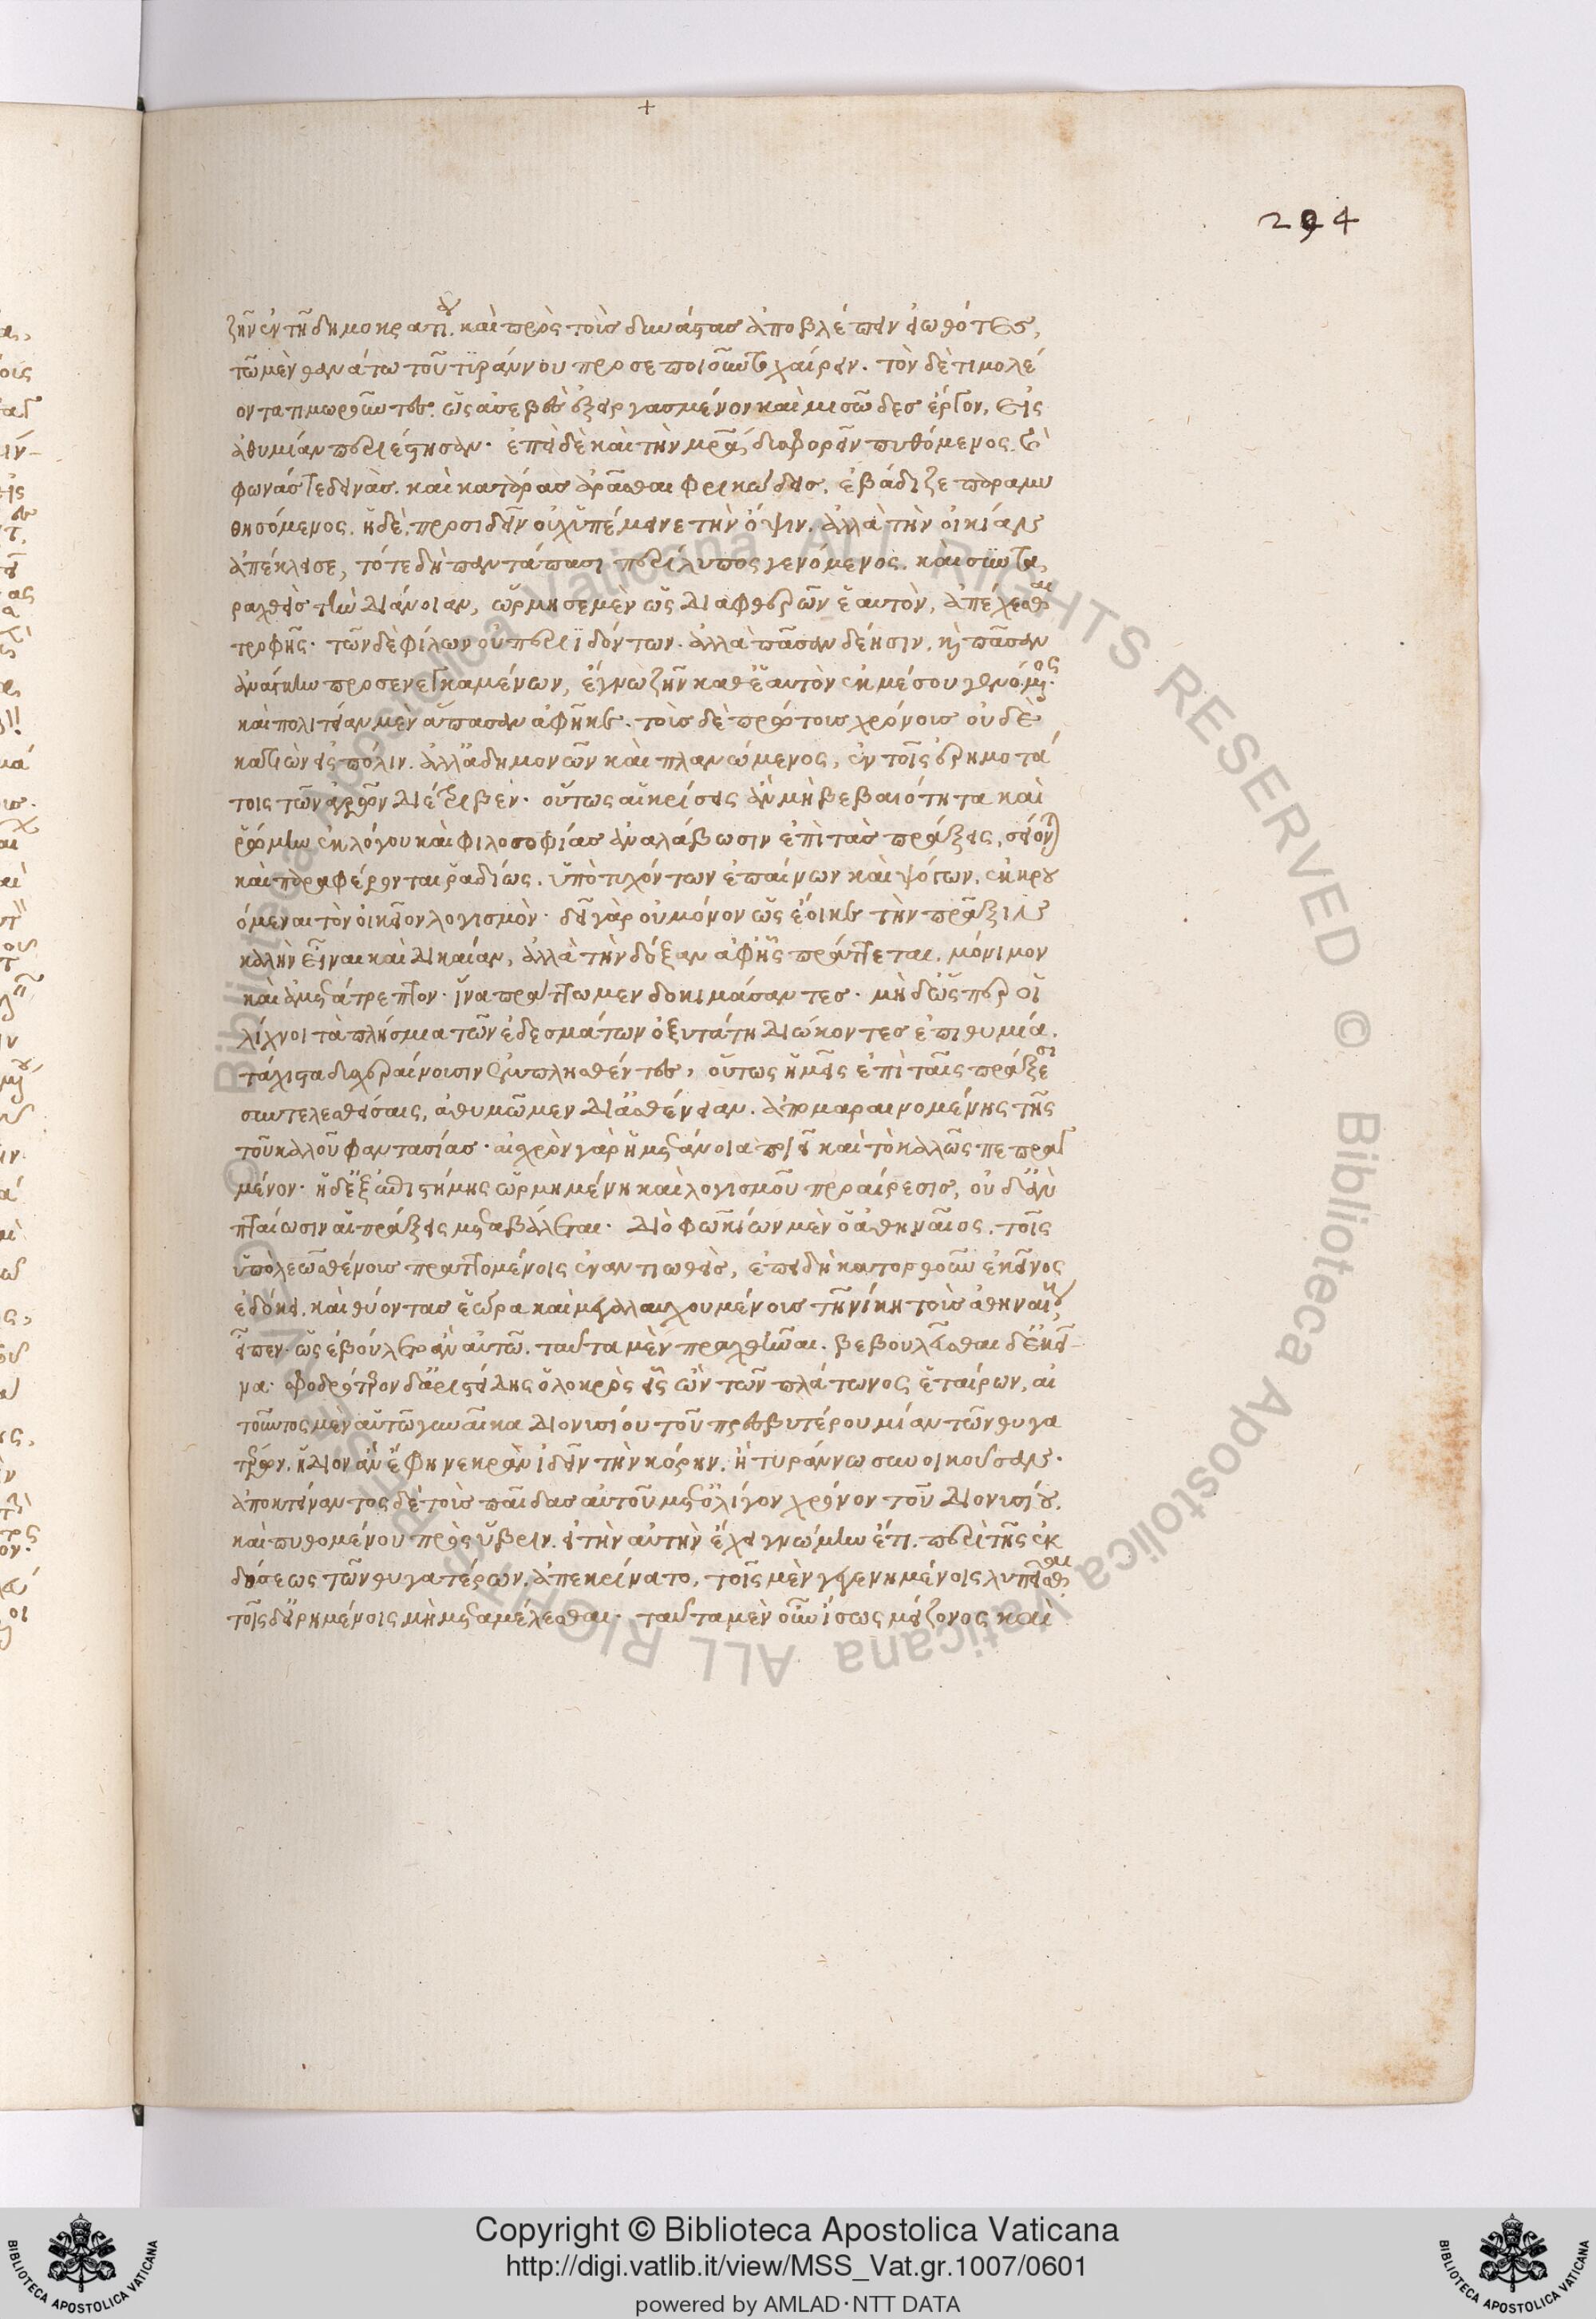 +
294
ζῆν ἐν τῆ δημοκρατία. καὶ πρὸς τοὺς δυνάστας ἀποβλέπειν εἰωθότες,
τῶ μὲν θανάτω τοῦ τυράννου προσεποιοῦντο χαίρειν. τὸν δὲ τιμολέ
οντα τιμωροῦντες. ὡς ἀσεβὲς ἐξειργασμένον καὶ μισῶδες ἔργον, εἰς
ἀθυμίαν περιέστησαν. ἐπεὶ δὲ καὶ τὴν μητέρα διαφορεῖν πυθόμενος. καὶ
φωνάς τε δεινὰς. καὶ κατάρας ἀρᾶσθαι φρικώδεις. ἐβάδιζε παραμυ
θησόμενος. ἡ δὲ, προσιδεῖν οὐχ ὑπέμεινε τὴν ὄψιν. ἀλλὰ τὴν οἰκίαν
ἀπέκλεισε, τότε δὴ παντάπασι περίλυπος γενόμενος. καὶ συντα
ραχθεὶς τὴν διάνοιαν, ὥρμησε μὲν ὡς διαφθερῶν ἑαυτὸν, ἀπέχεσθαι
τροφῆς. τῶν δὲ φίλων οὐ περιϊδόντων. ἀλλὰ πᾶσαν δέησιν. καὶ πᾶσαν
ἀνάγκην προσενεγκαμένων, ἔγνω ζῆν καθ' ἑαυτὸν ἐκ μέσου γενόμενος.
καὶ πολιτείαν μὲν ἅπασαν ἀφῆκε. τοὺς δὲ πρώτους χρόνους οὐδὲ
κατιὼν εἰς πόλιν. ἀλλ' ἀδημονῶν καὶ πλανώμενος, ἐν τοῖς ἐρημοτά
τοις τῶν ἀγρῶν διέτριβεν. οὕτως αἱ κρίσεις ἂν μὴ βεβαιότητα καὶ
ῥώμην ἐκ λόγου καὶ φιλοσοφίας ἀναλάβωσιν ἐπὶ τὰς πράξεις, σείονται
καὶ παραφέρονται ῥαδίως. ὑπὸ τυχόντων ἐπαίνων καὶ ψόγων. ἐκκρου
όμεναι τὸν οἰκεῖον λογισμὸν. δεῖ γὰρ οὐ μόνον ὡς ἔοικε τὴν πρᾶξιν
καλὴν εἶναι καὶ δικαίαν, ἀλλὰ τὴν δόξαν ἀφ' ἧς πράττεται. μόνιμον
καὶ ἀμετάτρεπτον. ἵνα πράττωμεν δοκιμάσαντες. μὴ δ' ὥσπερ οἱ
λίχνοι τὰ πλήσμια τῶν ἐδεσμάτων ὀξυτάτη διώκοντες ἐπιθυμία.
τάχιστα δυσχεραίνουσιν ἐμπλησθέντες, οὕτως ἡμεῖς ἐπὶ ταῖς πράξεσι
συντελεσθείσαις, ἀθυμῶμεν δι' ἀσθένειαν. ἀπομαραινομένης τῆς
τοῦ καλοῦ φαντασίας. αἰσχρὸν γὰρ ἡ μετάνοια ποιεῖ καὶ τὸ καλῶς πεπραγ
μένον. ἡ δ' ἐξ ἐπιστήμης ὡρμημένη καὶ λογισμοῦ προαίρεσις, οὐδ' ἂν
πταίωσιν αἱ πράξεις μεταβάλλεται. διὸ φωκίων μὲν ὁ ἀθηναῖος. τοῖς
ὑπὸ λεωσθένους πραττομένοις ἐναντιωθεὶς, ἐπειδὴ κατορθοῦν ἐκεῖνος
ἐδόκει. καὶ θύοντας ἑώρα καὶ μεγαλαυχουμένους τῆ νίκη τοὺς ἀθηναίους,
εἶπεν. ὡς ἐβούλετο ἂν αὐτῶ. ταῦτα μὲν πραχθῆναι. βεβουλεῦσθαι δ' ἐκεῖ
να. σφοδρότερον δ' ἀριστείδης ὁ λοκρὸς εἷς ὢν τῶν πλάτωνος ἑταίρων, αἰ
τοῦντος μὲν αὐτῶ γυναῖκα διονυσίου τοῦ πρεσβυτέρου μίαν τῶν θυγα
τέρων. ἥδιον ἂν ἔφη νεκρὰν ἰδεῖν τὴν κόρην. ἢ τυράννω συνοικοῦσαν.
ἀποκτείναντος δὲ τοὺς παῖδας αὐτοῦ μετ' ὀλίγον χρόνον τοῦ διονυσίου.
καὶ πυθομένου πρὸς ὕβριν. εἰ τὴν αὐτὴν ἔχει γνώμην ἔτι. περὶ τῆς ἐκ
δόσεως τῶν θυγατέρων. ἀπεκρίνατο, τοῖς μὲν γεγενημένοις λυπεῖσθαι
τοῖς δ' εἰρημένοις μὴ μεταμέλεσθαι. ταῦτα μὲν οὖν ἴσως μείζονος καὶ
© Biblioteca Apostolica Vaticana ALL RIGHTS RESERVED
Copyright © Biblioteca Apostolica Vaticana
http://digi.vatlib.it/view/MSS_Vat.gr.1007/0601
powered by AMLAD·NTT DATA
BIBLIOTECA APOSTOLICA VATICANA
BIBLIOTECA APOSTOLICA VATICANA